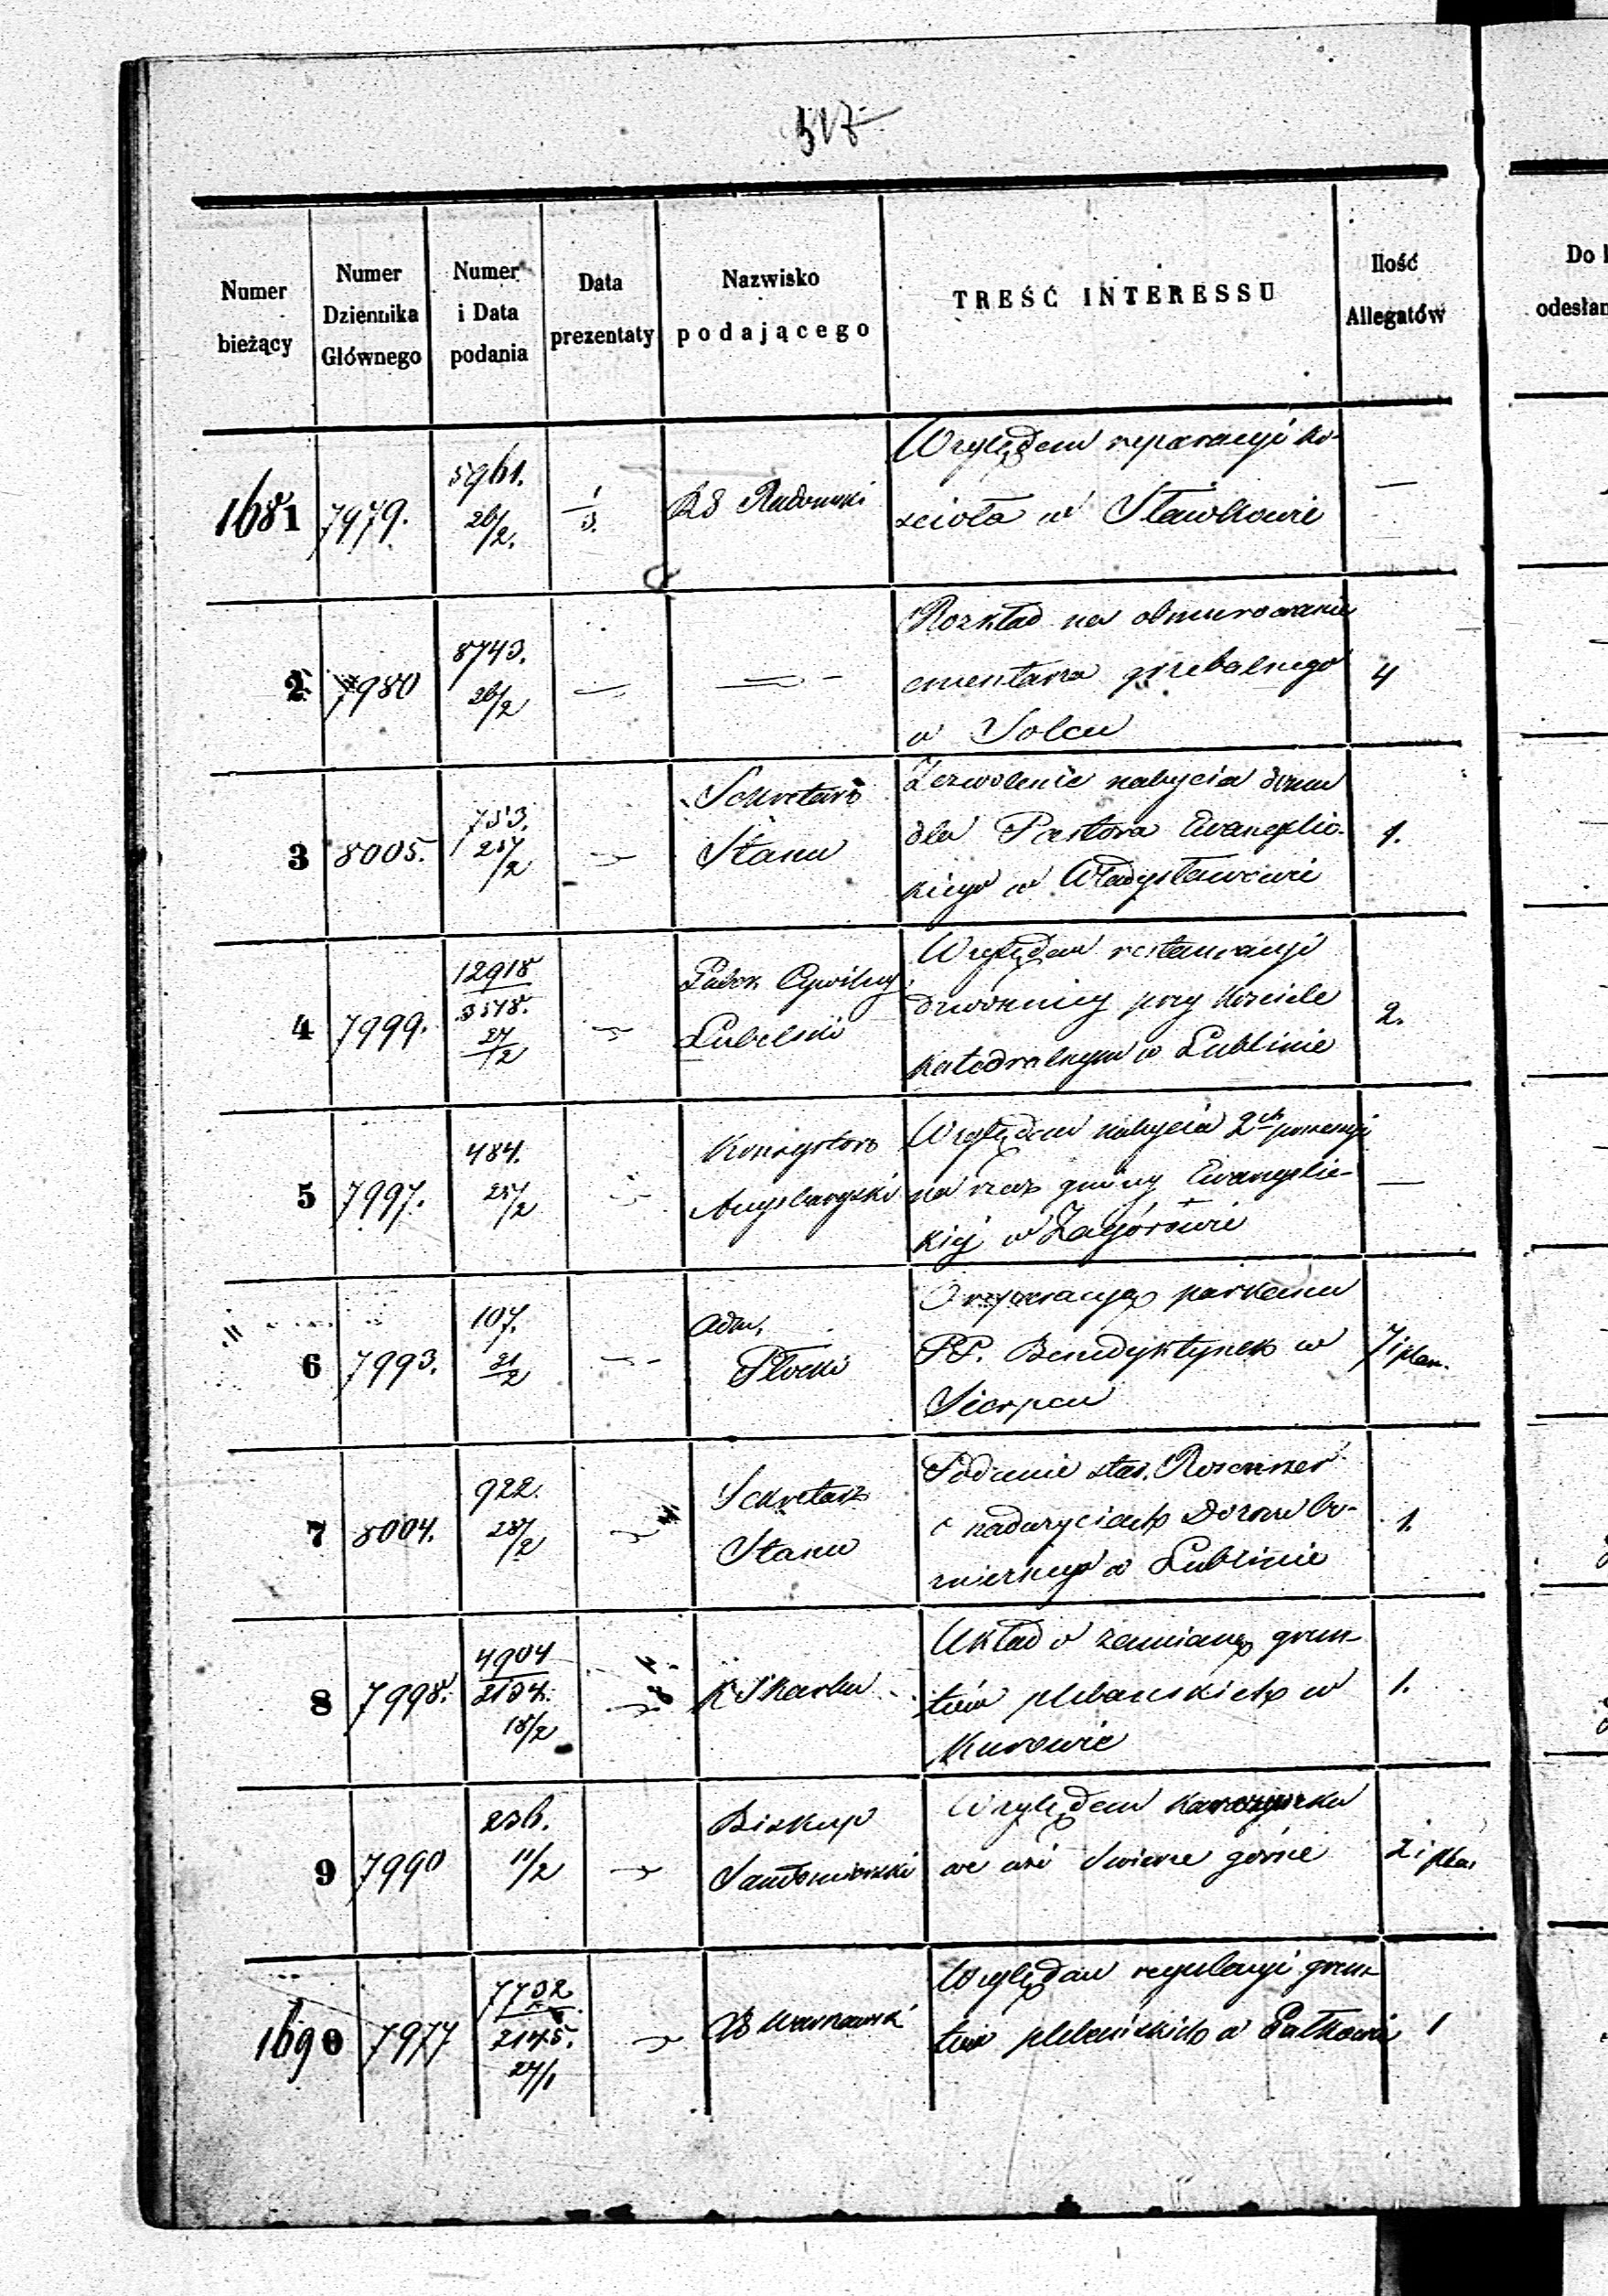 517
Numer bieżący
Numer Dziennika Głównego
Numer i Data podania
Data prezentaty
Nazwisko podającego
TREŚĆ INTERESSU
Ilość Allegatów
Do
odesłan
1681 7979. 5961. 26/2. 1/3. RG Radomski
Względem reparacyi ko-
scioła w Sławkowie
—
2 7980 8743. 26/2 — —
Rozkład na obmurowanie
cmentarza grzebalnego
w Solcu
4
3 8005. 753. 25/2
Sekretarz
Stanu
Zezwolenie nabycia domu
dla Pastora Ewangelic-
kiego w Władysławowie
1.
4 7999. 12918 3578. 27/2
Cywilny
Lubelski
Względem restauracyi
dzwonnicy przy Kościele
Katedralnym w Lublinie
2.
5 7997. 484. 25/2
Konsystorz
Augsburgski
Względem nabycia 2ch possessyi
na rzecz gminy Ewangelic-
kiej w Zagórowie
—
6 7993. 107. 21/2
Adm.
Płocki
O reparacyą parkanu
PP. Benedyktynek w
Sierpcu
7 i plan.
7 8004. 922. 28/2
Sekretarz
Stanu
Podanie star.
o nadużyciach Dozoru Bo-
zniczego w Lublinie
1.
8 7998. 4904 2134. 18/2
K Skarbu
Układ o zamianę grun-
tów plebanskich w
Kurowie
1.
9 7990 236. 11/2
Biskup
Sandomierski
Względem
we wsi górne
2 i plan
1690 7977 7732 2145. 27/1
RG Warszawski
Względem regulacyi grun-
tów plebańskich w
1